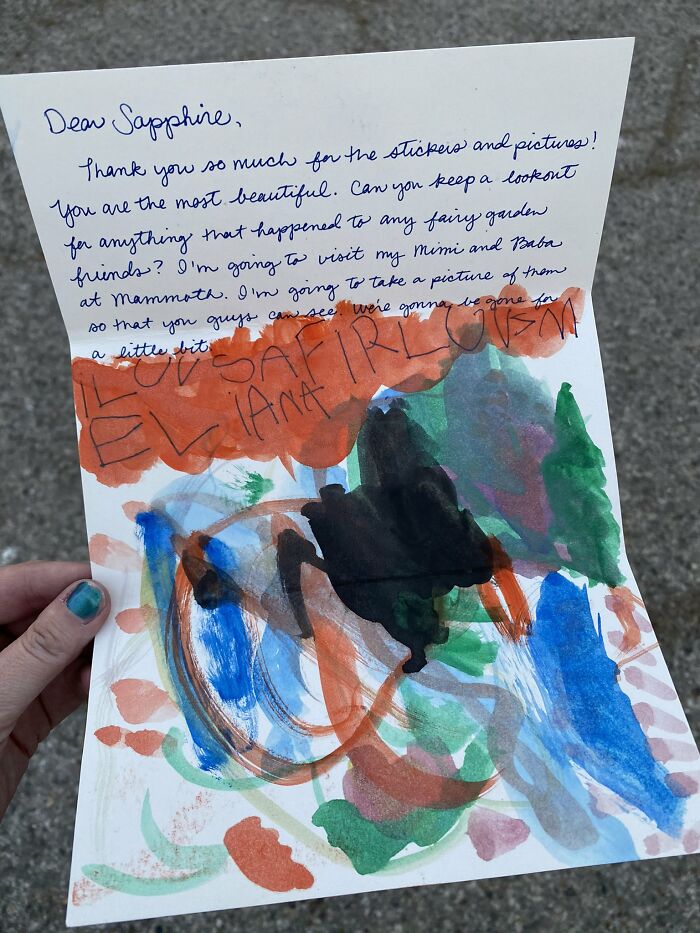 Dear Sapphire,
Thank you so much for the stickers and pictures!
You are the most beautiful. Can you keep a lookout
for anything that happened to any fairy garden
friends? I'm going to visit my Mimi and Baba
at Mammoth. I'm going to take a picture of them
so that you guys can see. We're gonna be gone for
a little bit.
ILOVSAFIRLOVEM
ELIANA